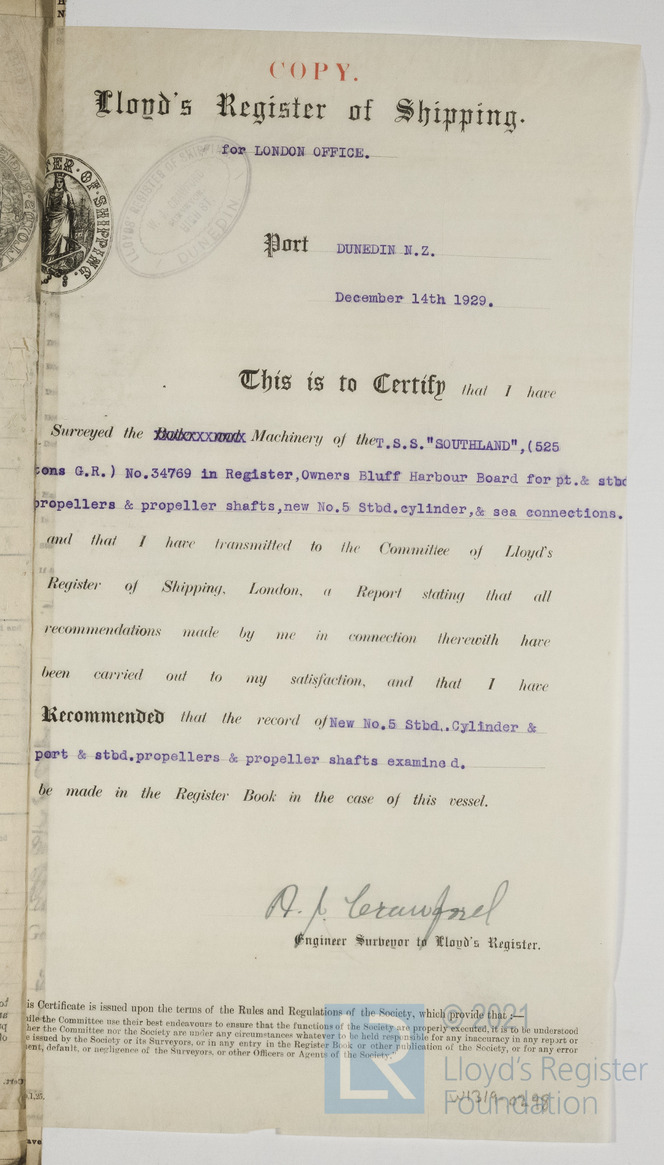 COPY.
Lloyd's Register of Shipping.
for LONDON OFFICE.
LLOYDS' REGISTER OF SHIPPING
DUNEDIN
Port DUNEDIN N.Z.
December 14th 1929.
This is to Certify that I have
Surveyed the Machinery of the T.S.S."SOUTHLAND",(525
ons G.R.) No.34769 in Register,Owners Bluff Harbour Board for pt.& stbd
propellers & propeller shafts,new No.5 Stbd.cylinder,& sea connections.
and that I have transmitted to the Committee of Lloyd's
Register of Shipping, London, a Report stating that all
recommendations made by me in connection therewith have
been carried out to my satisfaction, and that I have
Recommended that the record of New No.5 Stbd..Cylinder &
port & stbd.propellers & propeller shafts examined.
be made in the Register Book in the case of this vessel.
A. J. Crawford
Engineer Surveyor to Lloyd's Register.
is Certificate is issued upon the terms of the Rules and Regulations of the Society, which provide that :—
ile the Committee use their best endeavours to ensure that the functions of the Society are properly executed, it is to be understood
her the Committee nor the Society are under any circumstances whatever to be held responsible for any inaccuracy in any report or
e issued by the Society or its Surveyors, or in any entry in the Register Book or other publication of the Society, or for any error
ent, default, or negligence of the Surveyors, or other Officers or Agents of the Society.
1,25.
© 2021
LR
Lloyd's Register
Foundation
W1319-0298